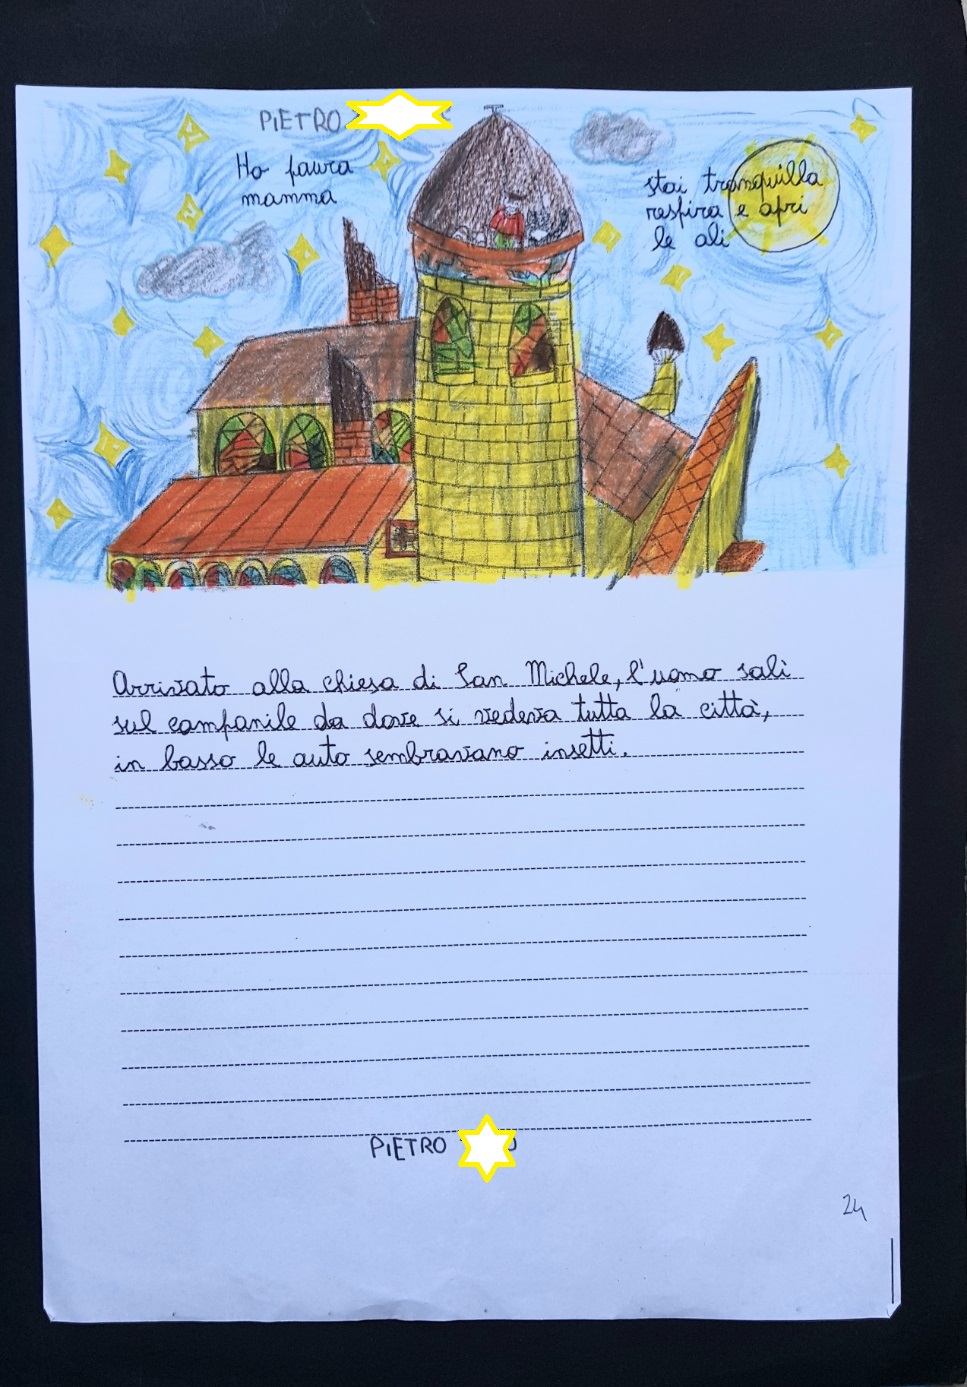 PIETRO
Ho paura
mamma
stai tranquilla
respira e apri
le ali
Arrivato alla chiesa di San Michele, l'uomo salì
sul campanile da dove si vedeva tutta la città,
in basso le auto sembravano insetti.
PIETRO
24